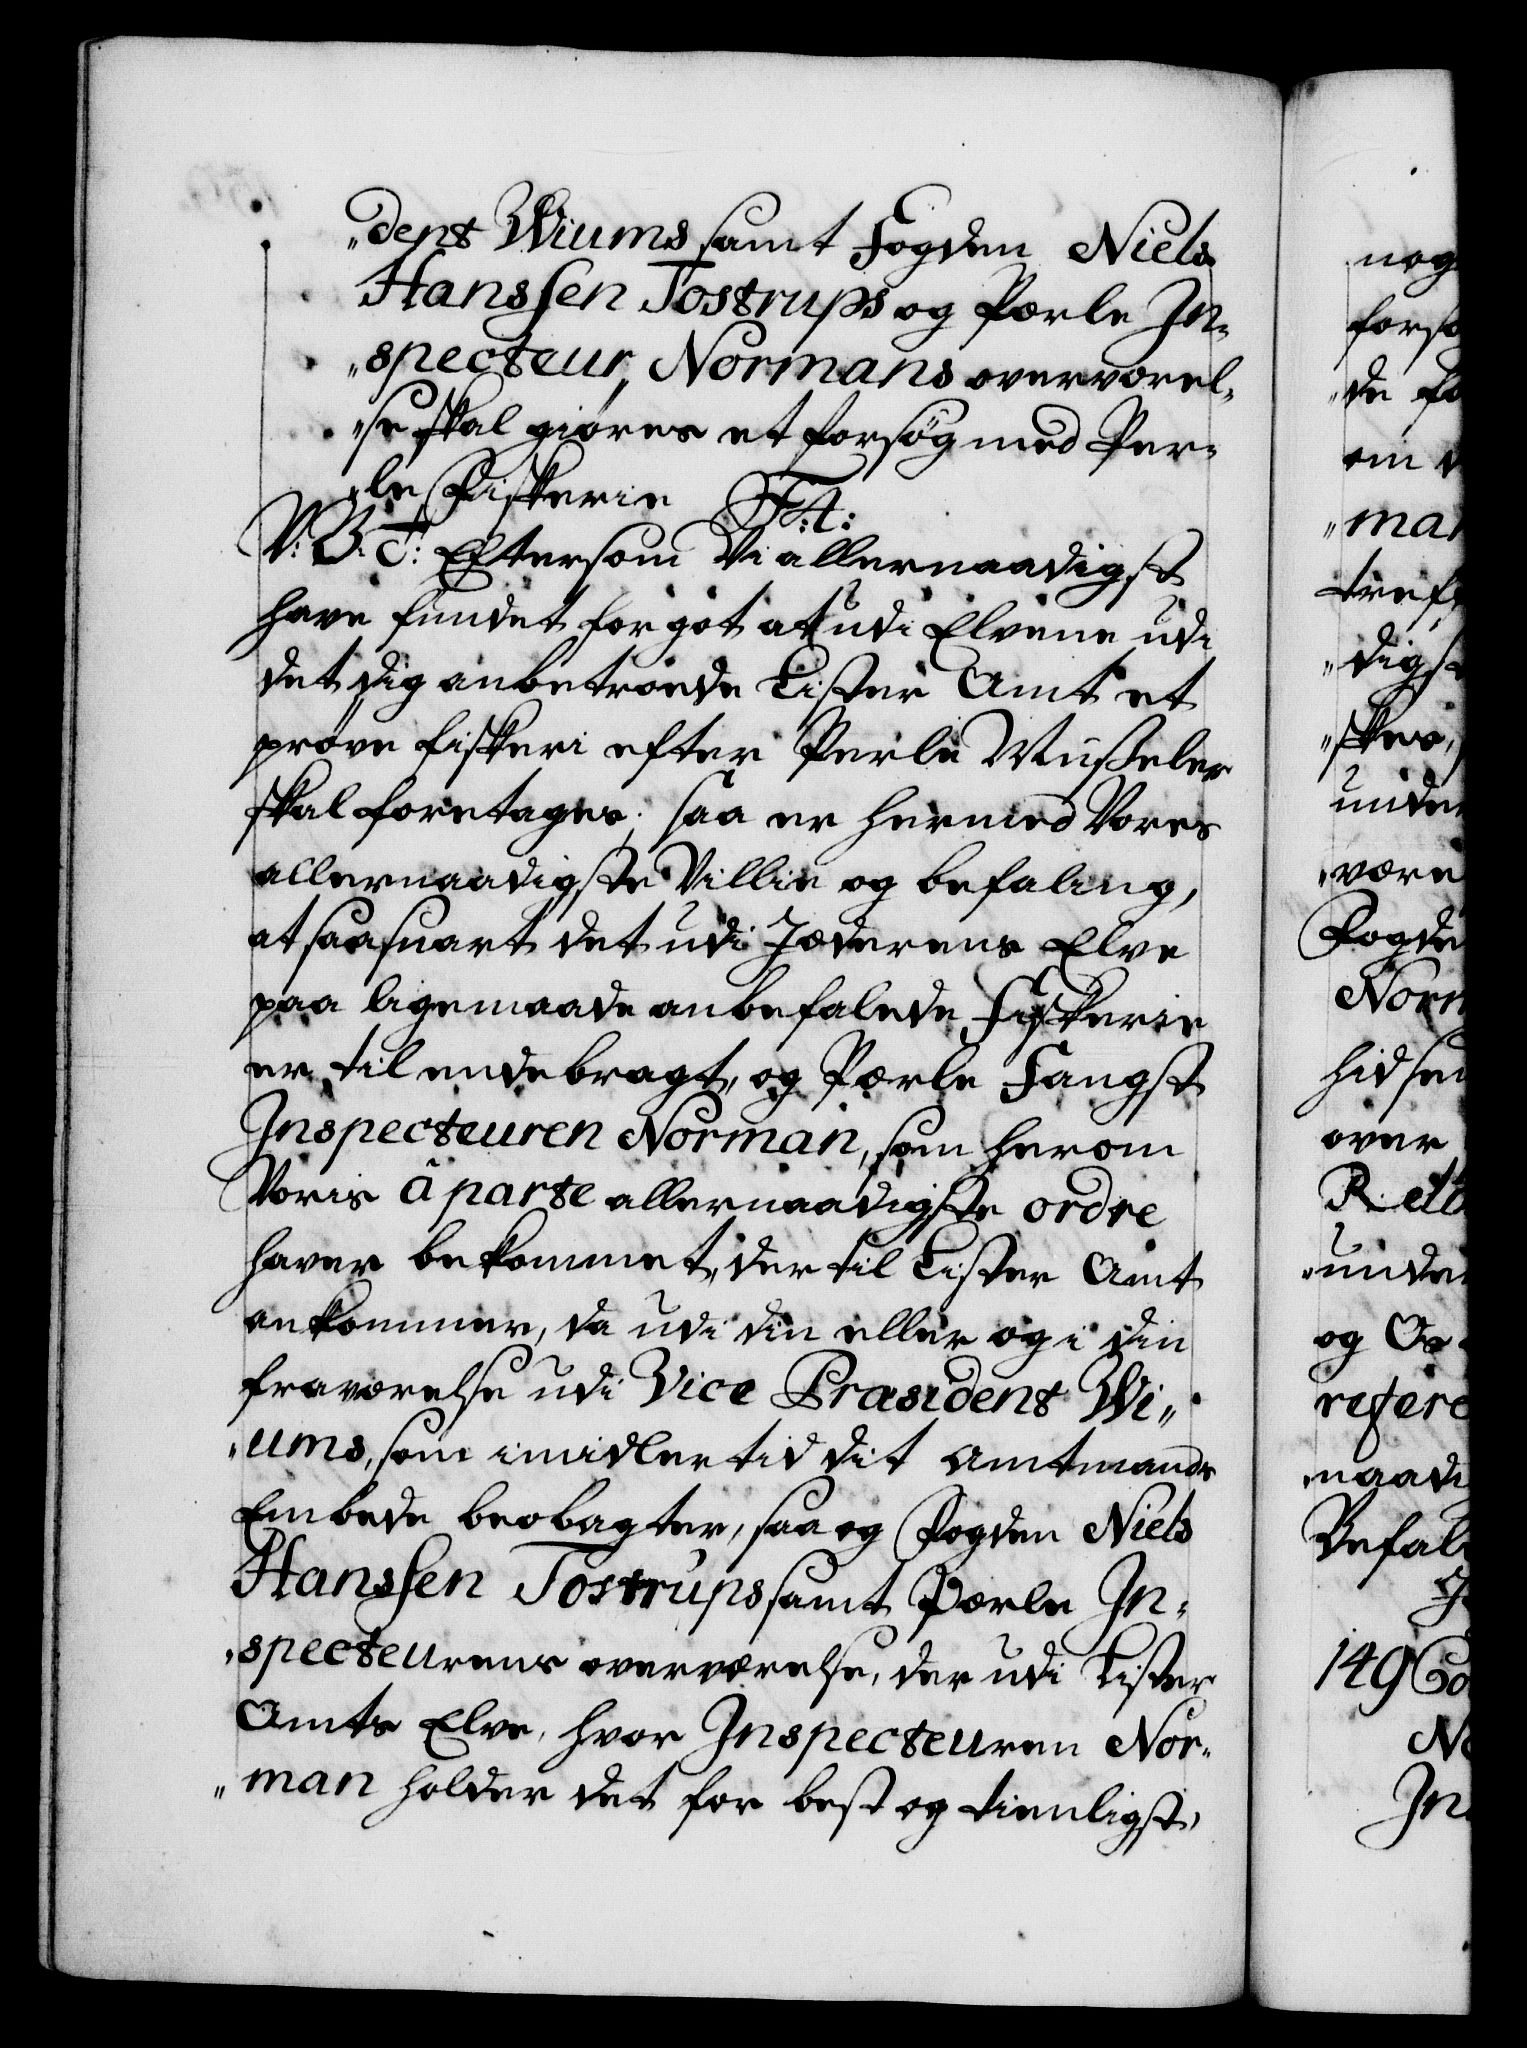 "dent Wiums samt Fogden Niels
Hanssen Tostrups og Pærle In-
"specteur Normans overværel-
"se skal giøres et forsøg med Per-
"le Fiskerie F:4:
V: G: T: Eftersom Vi allernaadigst
have fundet for got at udi Elvene udi
det dig anbetroede Lister Amt et
prøve fiskeri efter Perle Musseler
skal foretages; saa er hermed Vores
allernaadigste Villie og befaling,
at saasnart det udi Jæderens Elve
paa ligemaade anbefalede Fiskerie
er til endebragt, og Pærle Fangst
Inspecteuren Norman, som herom
Voris â parte allernaadigste ordre
haver bekommet, der til Lister Amt
ankommer, da udi din eller og i din
fraværelse udi Vice Præsident Wi"
"ums, som imidlertid dit Amtmands
Embede beobagter, saa og Fogden Niels
Hanssen Tostrups samt Pærle In-
"specteurens overværelse, der udi Lister
Amts Elve, hvor Inspecteuren Nor-
"man holder det for best og tienligst,
nog
forsø
"de fo
om
"man
treff
"digst
"skes,
under
"være
Fogde
Norm
hidsen
over
R
"unde
og
refere
"naadi
Befal
149 Co
No
In